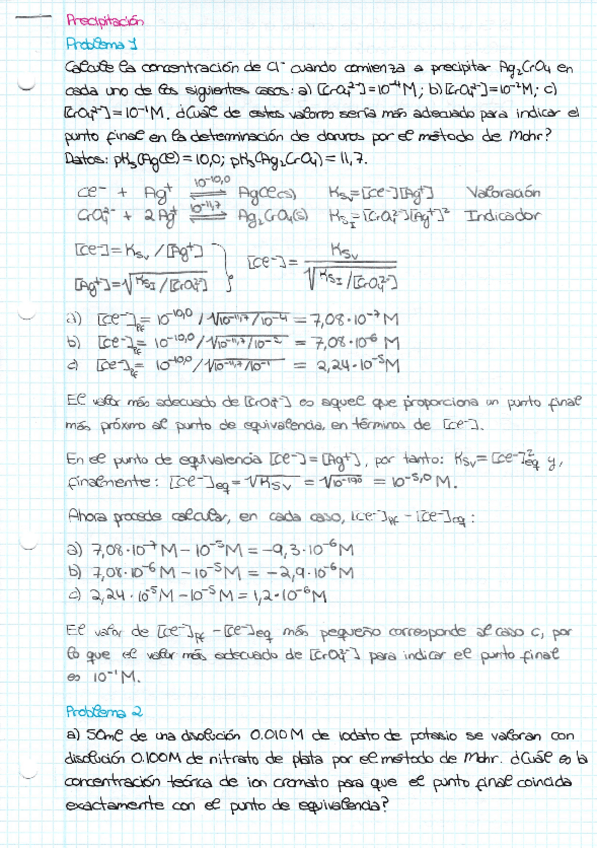 Precipitación
Problema 1
Calcule la concentración de Cl⁻ cuando comienza a precipitar Ag₂CrO₄ en
cada uno de los siguientes casos: a) [CrO₄²⁻]=10⁻⁴M; b)[CrO₄²⁻]=10⁻²M; c)
[CrO₄²⁻]=10⁻¹M. ¿Cuál de estos valores sería más adecuado para indicar el
punto final en la determinación de cloruros por el método de Mohr?
Datos: pKs(AgCl)=10,0; pKs(Ag₂CrO₄)=11,7.
Cl⁻ + Ag⁺ ⇌ 10⁻¹⁰,⁰ AgCl(s) Ksv=[Cl⁻][Ag⁺] Valoración
CrO₄²⁻ + 2Ag⁺ ⇌ 10⁻¹¹,⁷ Ag₂CrO₄(s) KsI=[CrO₄²⁻][Ag⁺]² Indicador
[Cl⁻]=Ksv/[Ag⁺]
[Ag⁺]=√KsI/[CrO₄²⁻] } [Cl⁻]= Ksv / √KsI/[CrO₄²⁻]
a) [Cl⁻]PF= 10⁻¹⁰,⁰/√10⁻¹¹,⁷/10⁻⁴ = 7,08·10⁻⁷M
b) [Cl⁻]PF= 10⁻¹⁰,⁰/√10⁻¹¹,⁷/10⁻² = 7,08·10⁻⁶M
c) [Cl⁻]PF= 10⁻¹⁰,⁰/√10⁻¹¹,⁷/10⁻¹ = 2,24·10⁻⁵M
El valor más adecuado de [CrO₄²⁻] es aquel que proporciona un punto final
más próximo al punto de equivalencia, en términos de [Cl⁻].
En el punto de equivalencia [Cl⁻]=[Ag⁺], por tanto: Ksv=[Cl⁻]²eq y,
finalmente: [Cl⁻]eq=√Ksv = √10⁻¹⁰,⁰ = 10⁻⁵,⁰ M.
Ahora procede calcular, en cada caso, [Cl⁻]PF - [Cl⁻]eq:
a) 7,08·10⁻⁷M - 10⁻⁵M = -9,3·10⁻⁶M
b) 7,08·10⁻⁶M - 10⁻⁵M = -2,9·10⁻⁶M
c) 2,24·10⁻⁵M - 10⁻⁵M = 1,2·10⁻⁶M
El valor de [Cl⁻]PF - [Cl⁻]eq más pequeño corresponde al caso c, por
lo que el valor más adecuado de [CrO₄²⁻] para indicar el punto final
es 10⁻¹M.
Problema 2
a) 50ml de una disolución 0.010M de iodato de potasio se valoran con
disolución 0.100M de nitrato de plata por el método de Mohr. ¿Cuál es la
concentración teórica de ion cromato para que el punto final coincida
exactamente con el punto de equivalencia?